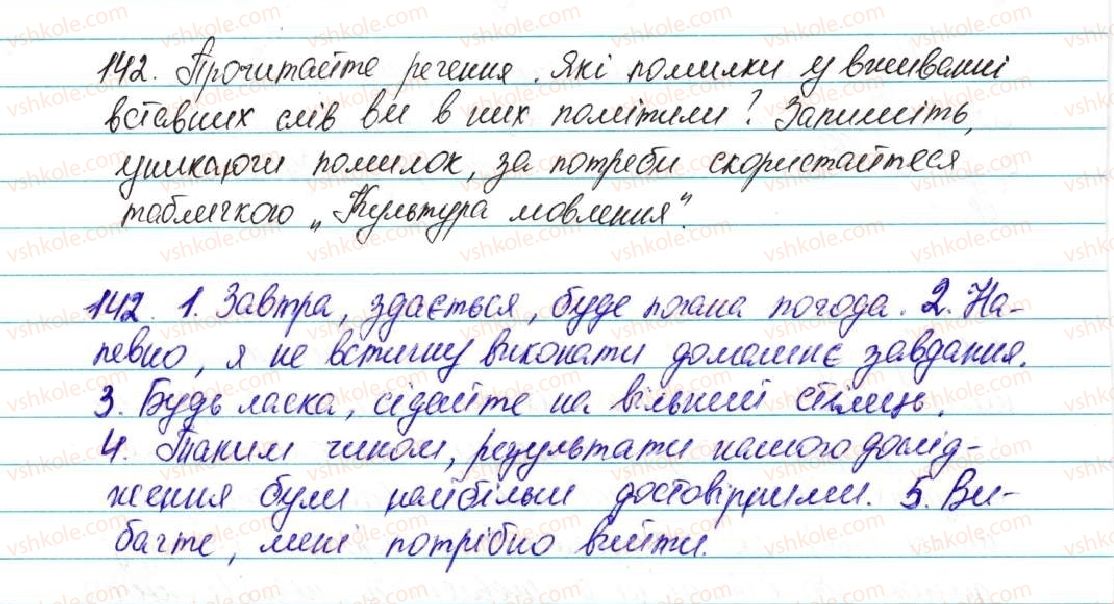 142. Прочитайте речення. Які помилки у вживанні
вставних слів ви в них помітили? Запишіть,
уникаючи помилок, за потреби скористайтеся
табличкою „Культура мовлення".
142. 1. Завтра, здається, буде погана погода. 2. На-
певно, я не встигну виконати домашнє завдання.
3. Будь ласка, сідайте на вільний стілець.
4. Таким чином, результати нашого дослід-
ження були найбільш достовірними. 5. Ви-
бачте, мені потрібно вийти.